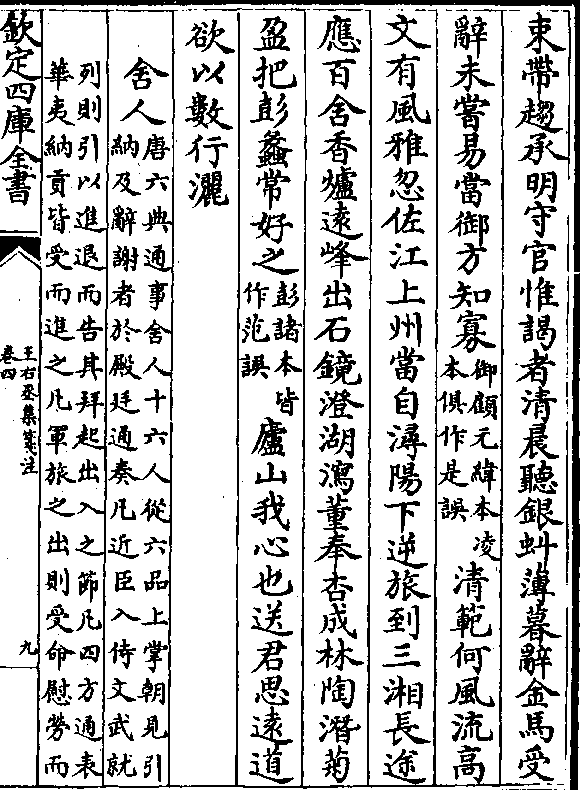 束帶趨承明守官惟謁者清晨聽銀虯薄暮辭金馬受
辭未嘗易當御方知寡御顧元緯本凌本俱作是誤清範何風流高
文有風雅忽佐江上州當自潯陽下逆旅到三湘長途
應百舍香爐遠峰出石鏡澄湖瀉董奉杏成林陶潛菊
盈把彭蠡常好之彭諸本皆作范誤廬山我心也送君思遠道
欲以數行灑
舍人唐六典通事舍人十六人從六品上掌朝見引
納及辭謝者於殿廷通奏凡近臣入侍文武就
列則引以進退而告其拜起出入之節凡四方通表
華夷納貢皆受而進之凡軍旅之出則受命慰勞而
欽定四庫全書
王右丞集箋注
卷四
九